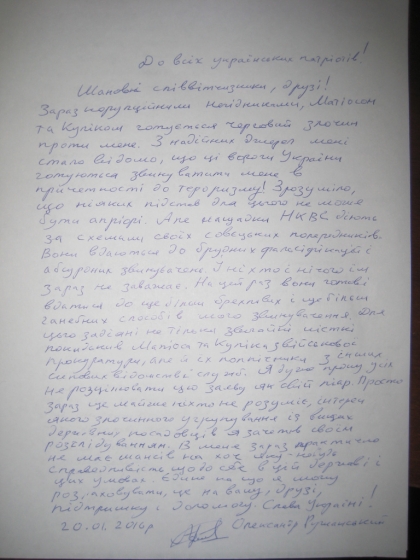 До всіх українських патріотів!
Шановні співвітчизники, друзі!
Зараз корупційними негідниками, Матіосом
та Куліком готується черговий злочин
проти мене. З надійних джерел мені
стало відомо, що ці вороги України
готуються звинуватити мене в
причетності до тероризму! Зрозуміло,
що ніяких підстав для цього не може
бути апріорі. Але нащадки НКВС діють
за схемами своїх совєцких попередників.
Вони вдаються до брудних фальсифікацій і
абсурдних звинувачень. І ніхто і нічого їм
зараз не заважає. На цей раз вони готові
вдатися до ще більш брехливих і ще більш
ганебних способів мого звинувачення. Для
цього задіяні не тільки звичайні місткі
Матіоса та Куліка з військової
прокуратури, але й їх поплічники з інших
силових відомств і служб. Я дуже прошу усіх
не розцінювати цю заяву як свій піар. Просто
зараз ще майже ніхто не розуміє, інтереси
якого злочинного угрупування із вищих
державних посадовців я зачепив своїм
розслідуванням. В мене зараз практично
не має шансів на хоч яку-небудь
справедливість щодо себе в цій державі і
цих умовах. Єдине на що я можу
розраховувати, це на вашу, друзі,
підтримку і допомогу. Слава Україні!
20.01.2016р Олександр